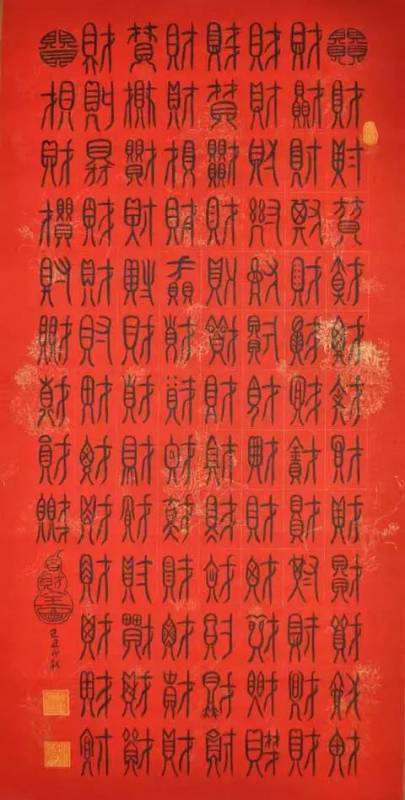 財財財財財財財財財財財財財
財財財財財財財財財財財財財
財財財財財財財財財財財財財
財財財財財財財財財財財財財
財財財財財財財財財財財財財
財財財財財財財財財財財財財
財財財財財財財財財財財財財
財財財財財財財財財
百財